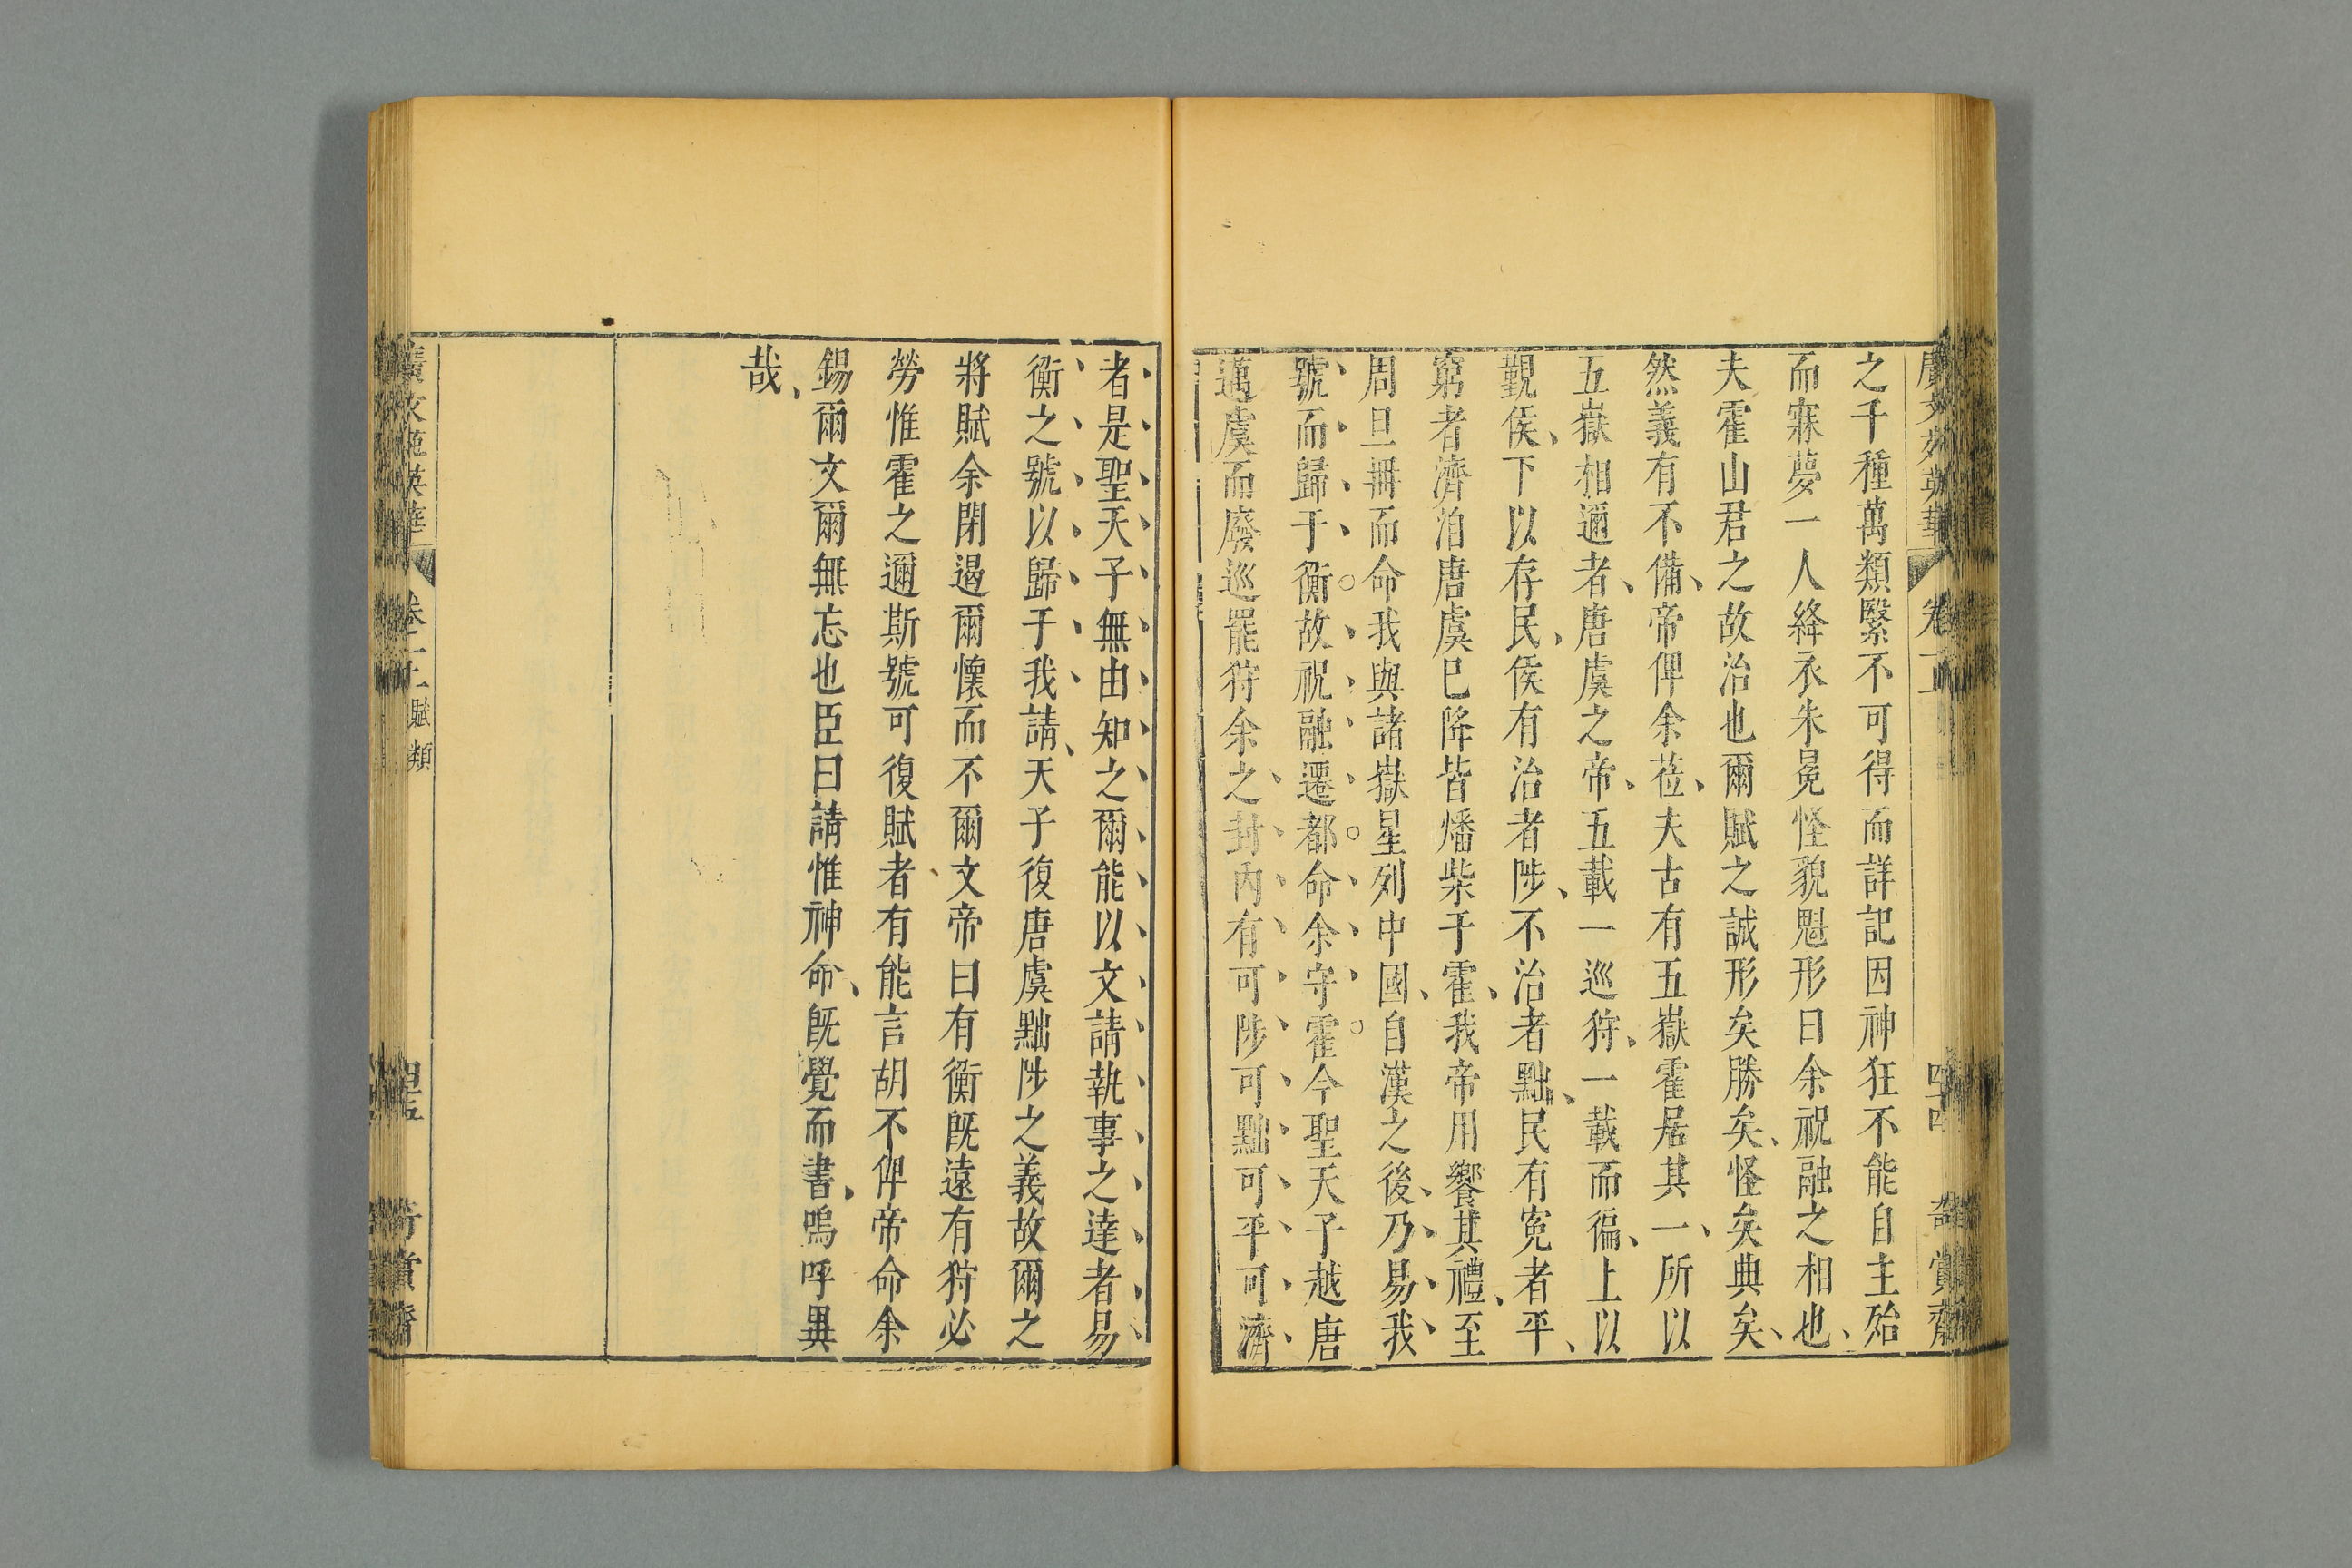 之千種萬類繄不可得而詳記因神狂不能自主殆
而寐夢一人絳衣朱冕怪貌魁形曰余祝融之相也
夫霍山君之故治也爾賦之誠形矣勝矣怪矣典矣
然義有不備帝俾余蒞夫古有五嶽霍居其一所以
五嶽相邇者唐虞之帝五載一巡狩一載而徧上以
覲侯下以存民侯有治者陟不治者黜民有寃者平
窮者濟洎唐虞巳降皆燔柴于霍我帝用饗其禮至
周旦冊而命我與諸嶽星列中國自漢之後乃易我
號而歸于衡故祝融遷都命余守霍今聖天子越唐
邁虞而廢巡罷狩余之封內有可陟可黜可平可濟
者是聖天子無由知之爾能以文請執事之達者易
衡之號以歸于我請天子復唐虞黜陟之義故爾之
將賦余閉遏爾懷而不爾文帝曰有衡旣遠有狩必
勞惟霍之邇斯號可復賦者有能言胡不俾帝命余
錫爾文爾無忘也臣曰請惟神命旣覺而書嗚呼異
哉
廣文苑英華 卷二十 賦類 奇賞齋